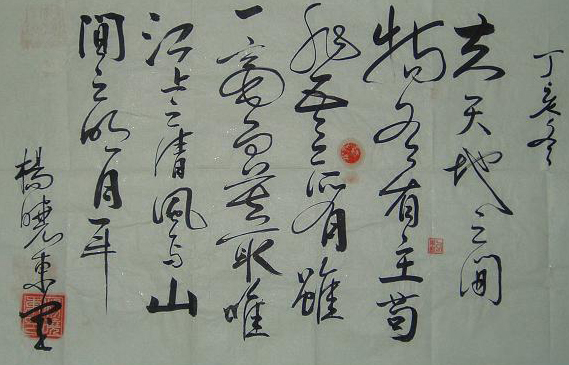 丁亥冬
夫天地之間
物各有主苟
非吾之所有雖
一毫而莫取唯
江上之清風与山
間之明月耳
楊曉東